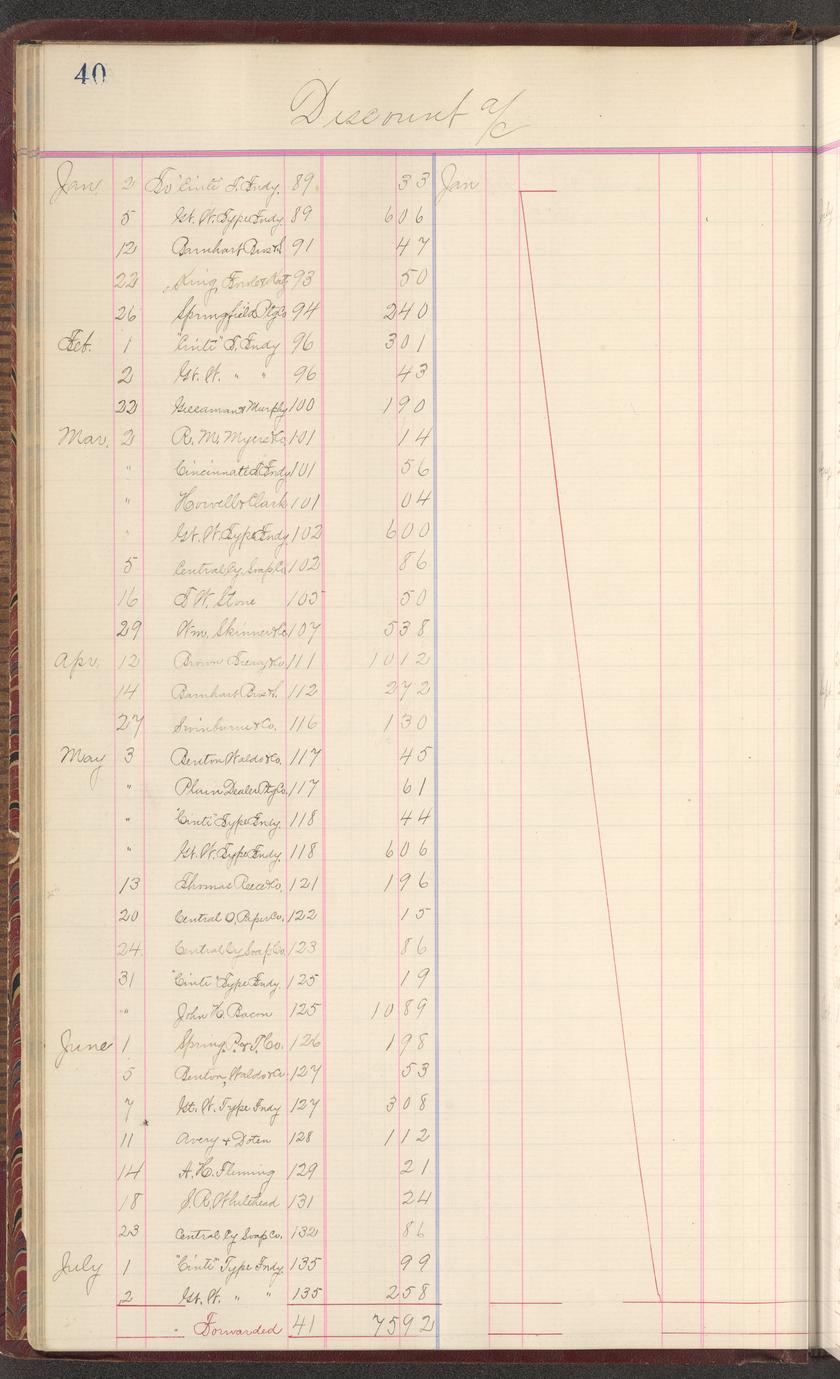 40
Discount a/c
Jan. 2 To "Cinti" T. Fndy. 89 33 Jan
5 Gt. W. Type Fndy 89 606
12 Barnhart Bros & S 91 47
22 King, Fowle & Katz 93 50
26 Springfield Ptg Co 94 240
Feb. 1 "Cinti" T. Fndy 96 301
2 Gt. W. " " 96 43
22 & Murphy 100 190
Mar. 2 R. M. Myers & Co 101 14
" Cincinnati T. Fndy 101 56
" Howell & Clark 101 04
" Gt. W. Type Fndy. 102 600
5 Central Cy. Soap Co 102 86
16 T. W. Stone 105 50
29 Wm. Skinner & Co 107 538
Apr. 12 Brown & Co 111 1012
14 Barnhart Bros & S. 112 272
27 Swinburne & Co. 116 130
May 3 Benton Waldo & Co. 117 45
" Plain Dealer Ptg Co. 117 61
" "Cinti" Type Fndy. 118 44
" Gt. W. Type Fndy. 118 606
13 Thomas Reece & Co. 121 196
20 Central O. Paper Co. 122 15
24. Central Cy Soap Co. 123 86
31 "Cinti" Type Fndy. 125 19
" John H. Bacon 125 1089
June 1 Spring. P. & T. Co. 126 198
5 Benton, Waldo & Co. 127 53
7 Gt. W. Type Fndy 127 308
11 Avery & Doten 128 112
14 A. H. Fleming 129 21
18 S. R. Whitehead 131 24
23 Central Cy Soap Co. 132 86
July 1 "Cinti" Type Fndy. 135 99
2 Gt. W. " " 135 258
" Forwarded 41 7592